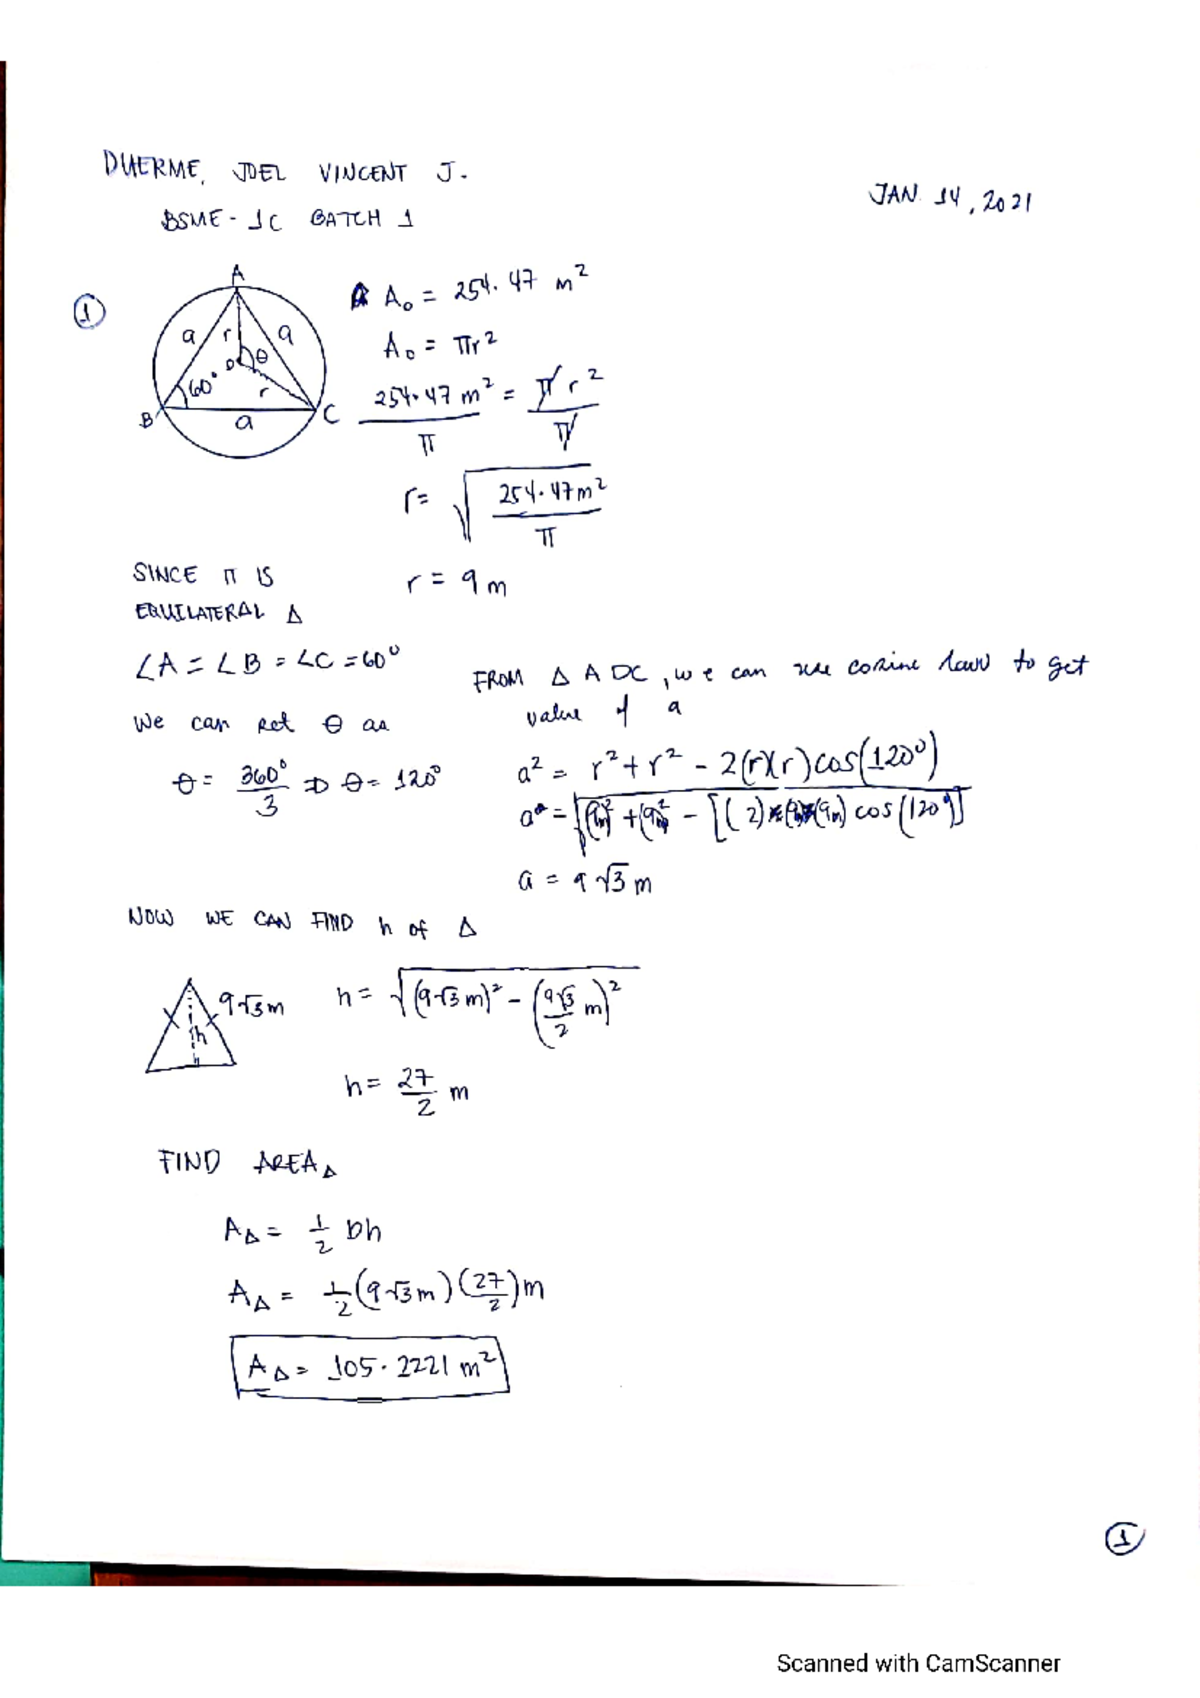 DUERME, JOEL VINCENT J.
JAN. 14, 2021
BSME - 1C BATCH 1
1
A
a r a
D θ
60° r
B a C
A₀ = 254.47 m²
A₀ = πr²
254.47 m² / π = πr² / π
r = √(254.47 m² / π)
r = 9 m
SINCE IT IS
EQUILATERAL Δ
∠A = ∠B = ∠C = 60°
We can set θ as
θ = 360° / 3 ⇒ θ = 120°
FROM Δ ADC, we can use cosine law to get
value of a
a² = r² + r² - 2(r)(r) cos(120°)
a = √((9m)² + (9m)² - [(2)(9m)(9m) cos(120°)])
a = 9√3 m
NOW WE CAN FIND h of Δ
9√3 m
h
h = √((9√3 m)² - (9√3/2 m)²)
h = 27/2 m
FIND AREA Δ
A Δ = 1/2 bh
A Δ = 1/2 (9√3 m) (27/2) m
A Δ = 105.2221 m²
1
Scanned with CamScanner